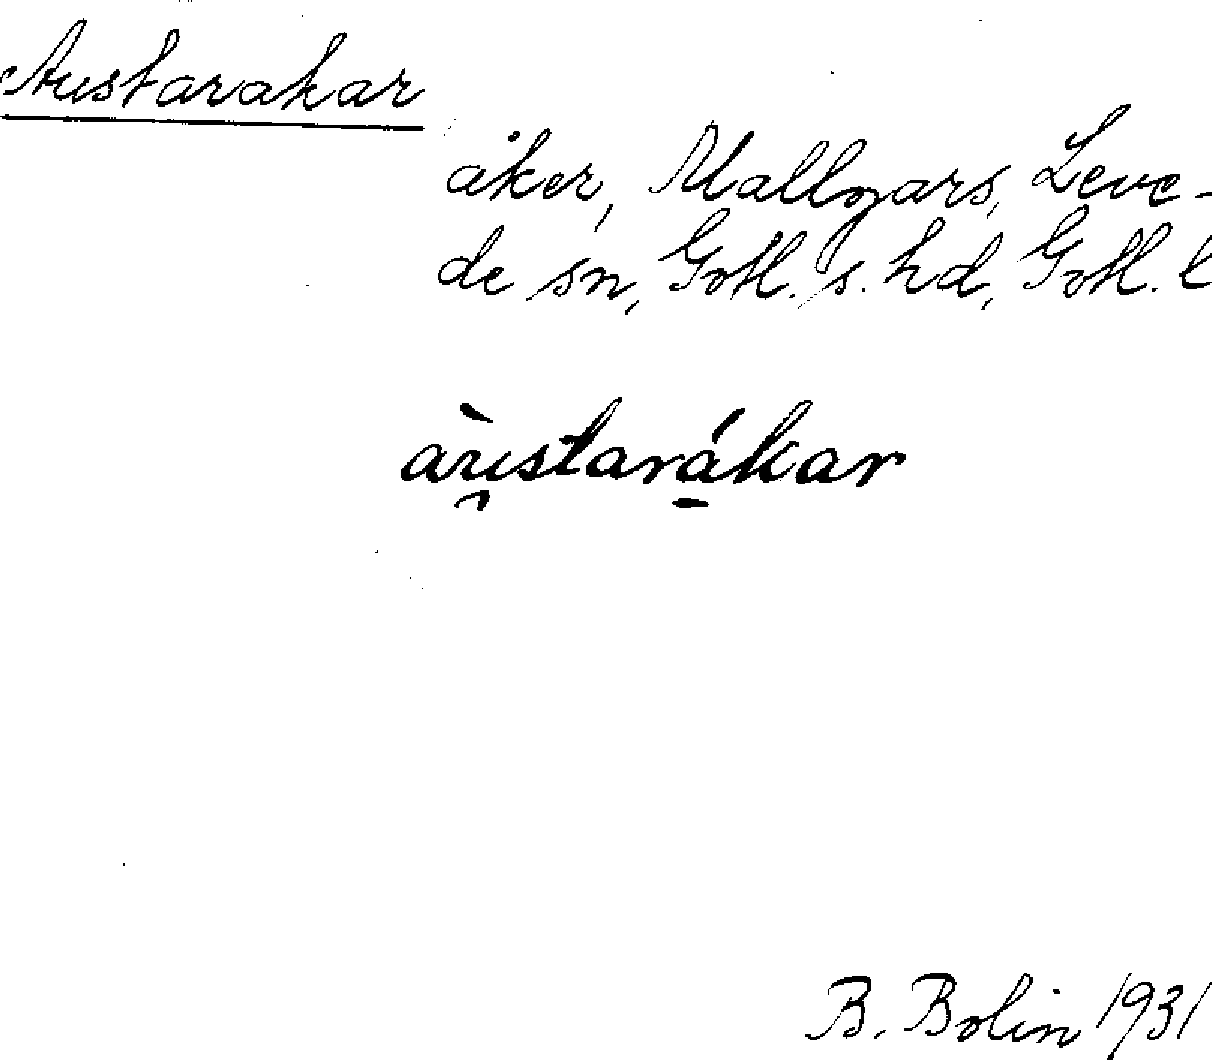 Austarakar
åker, Mallgårs, Leve-
de sn, Gotl. s. hd, Gotl. l
àu̯stará̠kar
B. Bolin 1931